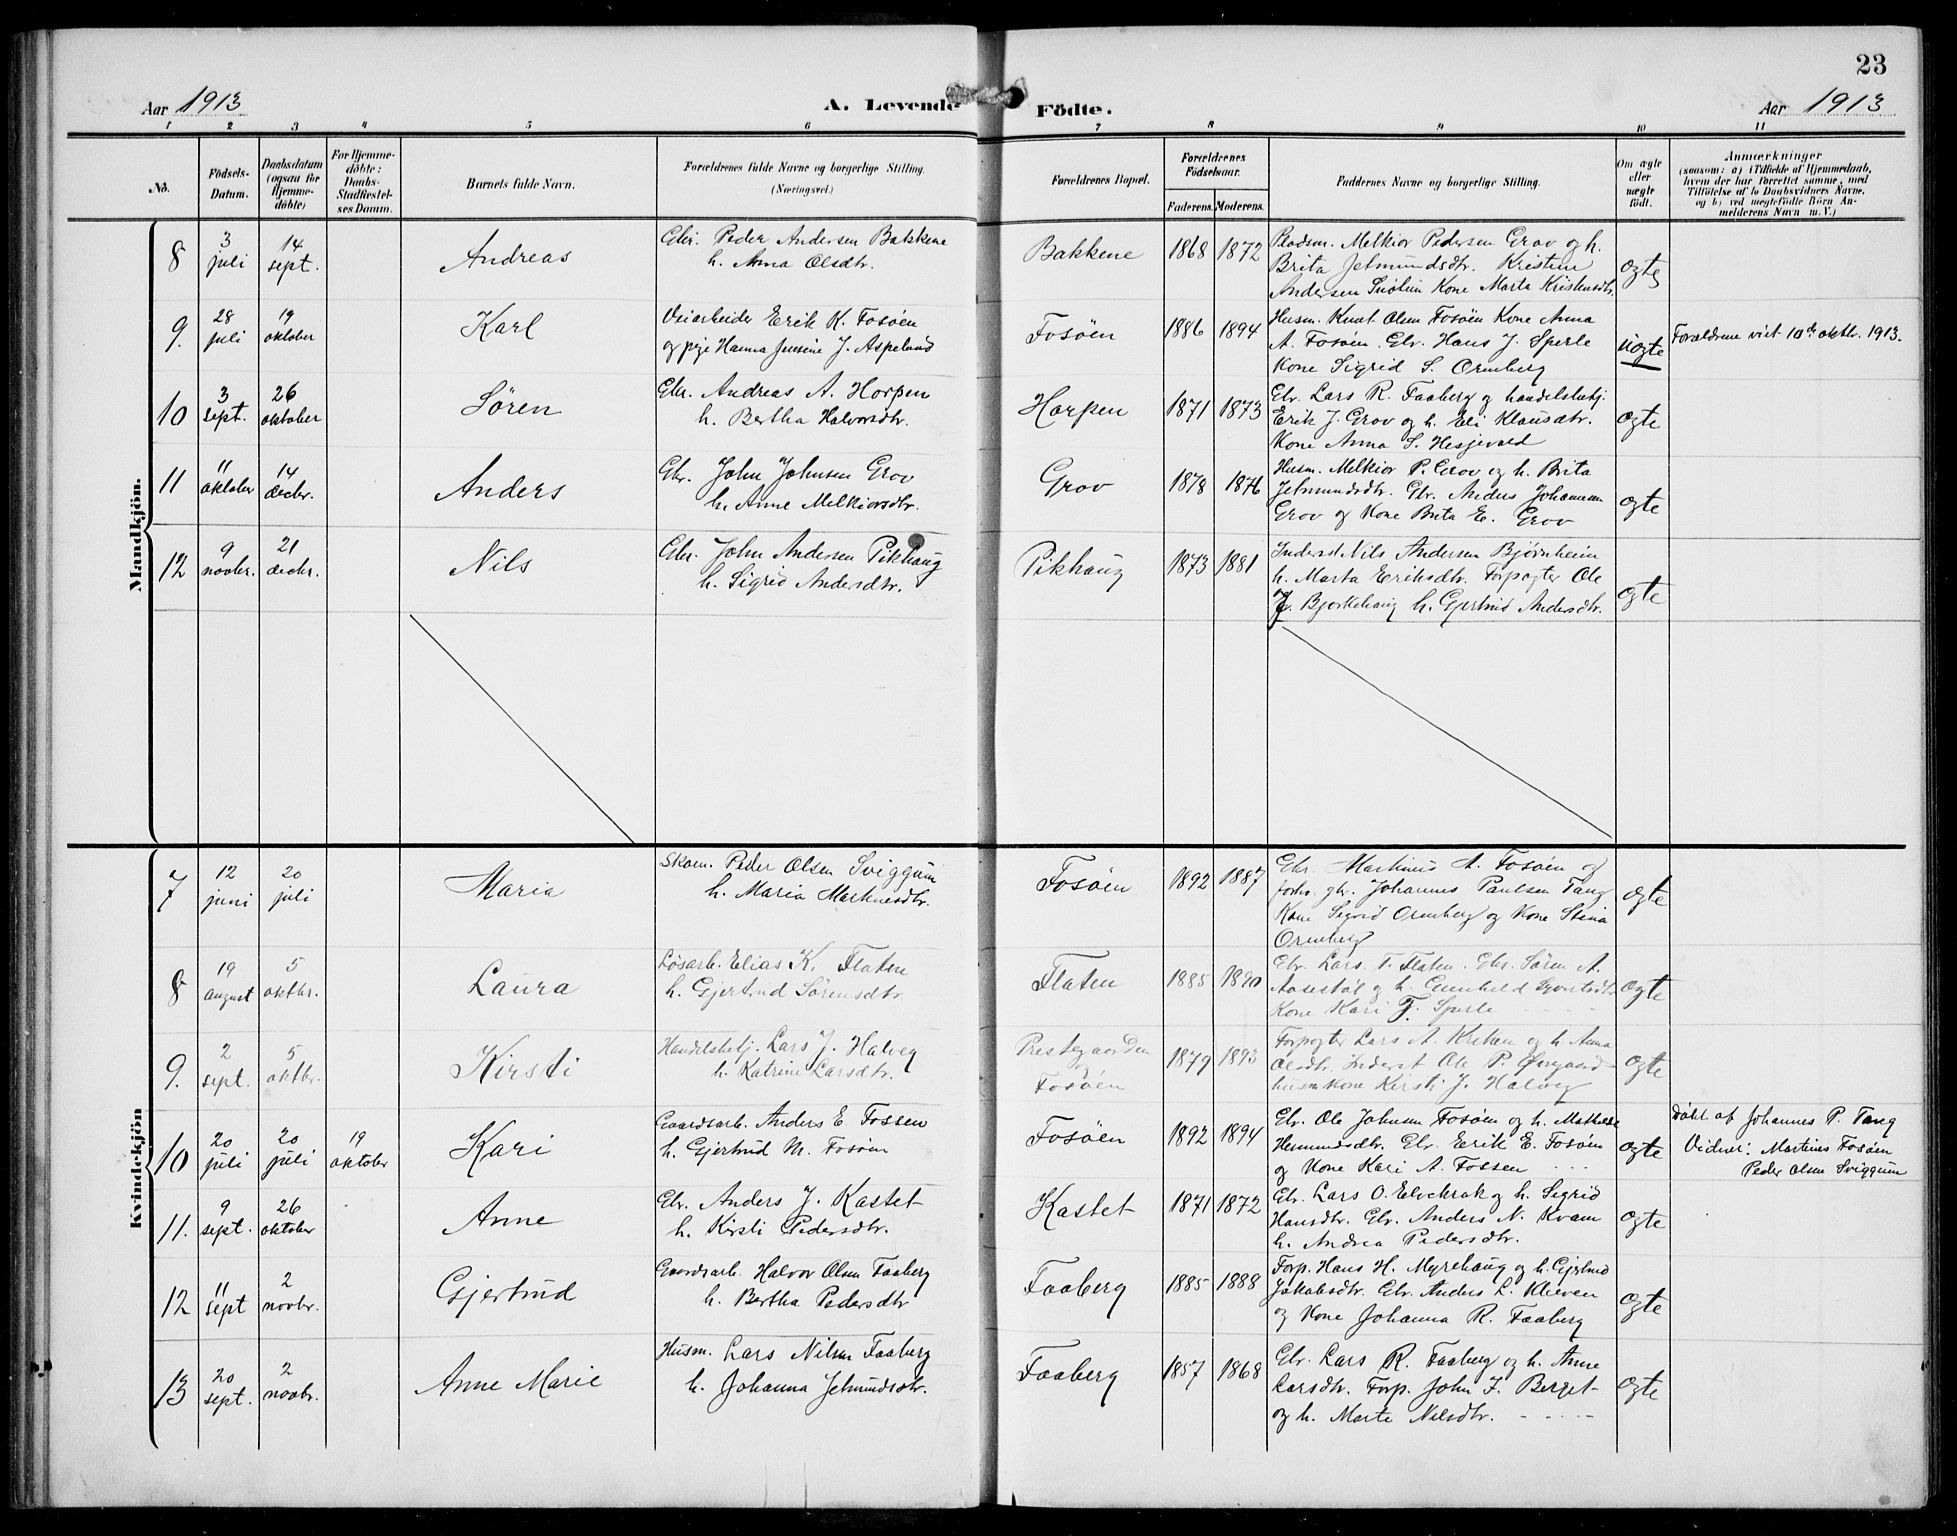 23
Aar 1913 A. Levende Födte. Aar 1913
1 2 3 4 5 6 7 8 9 10 11
No. Födsels-Datum. Daabsdatum (ogsaa for Hjemme-döbte) For Hjemme-döbte: Daabs-Stadfæstel-ses Datum. Barnets fulde Navn. Forældrenes fulde Navne og borgerlige Stilling. (Næringsvei.) Forældrenes Bopæl. Forældrenes Födselsaar. Faderens. Moderens. Faddernes Navne og borgerlige Stilling. Om ægte eller uægte födt. Anmærkninger (saasom: a) i Tilfælde af Hjemmedaab, hvem der har forrettet samme, med Tilföielse af to Daabsvidners Navne, og b) ved uegtefödte Börn Anmelderens Navn m. V.)
Mandkjön.
8 3 juli 14 sept. Andreas Gbr. Peder Andersen Bakkene
h. Anna Olsdtr. Bakkene 1868 1872 Pladsm. Melkior Pedersen Grov og h.
Brita Jetmundsdtr. Kristen
Andersen Kone Marta Kristensdtr. ægte
9. 28 juli 19 oktober Karl Veiarbeider Erik K. Fosöen
og pige Hanna Jensine J. Aspelund Fosöen 1886 1894 Husm. Knut Olsen Fosöen Kone Anna
A. Fosöen. Gbr. Hans J. Sperle
Kone Sigrid S. Ormberg uægte Forældrene viet 10de oktbr. 1913.
10 3 sept. 26 oktober Sören Gbr. Andreas A. Horpen
h. Bertha Halvorsdtr. Horpen 1871 1873 Gbr. Lars R. Faaberg og handelsbetj.
Erik J. Grov og h. Eli Klausdtr.
Kone Anna S. Hesjevold ægte
11 11 oktober 14 decbr. Anders Gbr. John Johnsen Grov
h. Anne Melkiorsdtr. Grov 1878 1876 Husm. Melkior P. Grov og h. Brita
Jetmundsdtr. Gbr. Anders Johannesen
Grov og Kone Brita E. Grov ægte
12 9 novbr. 21 decbr. Nils Gbr. John Andersen Pikhaug
h. Sigrid Andersdtr. Pikhaug 1873 1881 Inderst Nils Andersen Bjørnheim
h. Marta Eriksdtr. Forpagter Ole
J. Bjørkehaug h. Gjertrud Andersdtr. ægte
Kvindekjön
7 12 juni 20 juli Maria Skom. Peder Olsen Sviggum
h. Maria Martinusdtr. Fosöen 1892 1887 Gbr. Martinus A. Fosöen og
forh. gbr. Johannes Paulsen Tang
Kone Sigrid Ormberg og Kone Stina
Ormberg ægte
8 19 august 5 oktbr. Laura Løsarb. Elias K. Flaten
h. Gjertrud Sörensdtr. Flaten 1885 1890 Gbr. Lars T. Flaten. Gbr. Sören A.
Aasestøl og h. Gunhild
Kone Kari T. Sperle ægte
9. 2 sept. 5 oktbr. Kirsti Handelsbetj. Lars J. Halveg
h. Katrine Larsdtr. Prestegaarden
Fosöen 1879 1893 Forpagter Lars A. Kreken og h. Anna
Olsdtr. Inderst Ole P. Øvregaard
husm.kone Kirsti J. Halveg ægte
10 20 juli 20 juli 19 oktober Kari Gaardsarb. Anders E Fossen
h. Gjertrud M. Fosöen Fosöen 1892 1894 Gbr. Ole Johnsen Fosöen og h. Mathilde
Hemmundsdtr. Gbr. Erik E. Fosöen
og Kone Kari A. Fossen ægte Døbt af Johannes P. Tang
Vidner: Martinus Fosöen
Peder Olsen Sviggum
11. 9 sept. 26 oktober Anne Gbr. Anders J. Kastet
h. Kirsti Pedersdtr. Kastet 1871 1872 Gbr. Lars O. Elvekrok og h. Sigrid
Hansdtr. Gbr. Anders N. Kvam
h. Andrea Pedersdtr. ægte
12 11 sept 2 novbr. Gjertrud Gaardsarb. Halvor Olsen Faaberg
h. Bertha Pedersdtr Faaberg 1885 1888 Forp. Hans H. Myrehaug og h. Gjertrud
Jakobsdtr. Gbr. Anders L. Kleven
og Kone Johanna R. Faaberg ægte
13 20 sept. 2 novbr. Anne Marie Husm. Lars Nilsen Faaberg
h. Johanna Jetmundsdtr. Faaberg 1857 1868 Gbr. Lars R. Faaberg og h. Anne
Larsdtr. Forp. John J. Berget
og h. Marte Nilsdtr. ægte